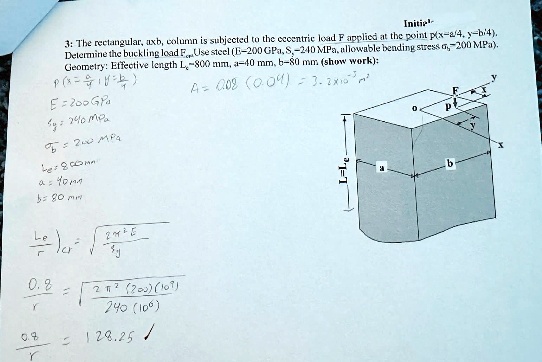 Initial
3: The rectangular, axb, column is subjected to the eccentric load F applied at the point p(x=a/4, y=b/4).
Determine the buckling load Fcr. Use steel (E=200 GPa, Sy=240 MPa, allowable bending stress σb=200 MPa).
Geometry: Effective length Le=800 mm, a=40 mm, b=80 mm (show work):
P(x = a/4, y = b/4)
A = 0.08 (0.04) = 3.2x10⁻³ m²
E = 200 GPa
Sy = 240 MPa
σb = 200 MPa
Le = 800 mm
a = 40 mm
b = 80 mm
Le/r )cr = √(2π²E/Sy)
0.8/r = √(2π²(200)(10⁹)/240(10⁶))
0.8/r = 128.25 ✓
y
F
x
o
P
y
x
L=Le
a
b